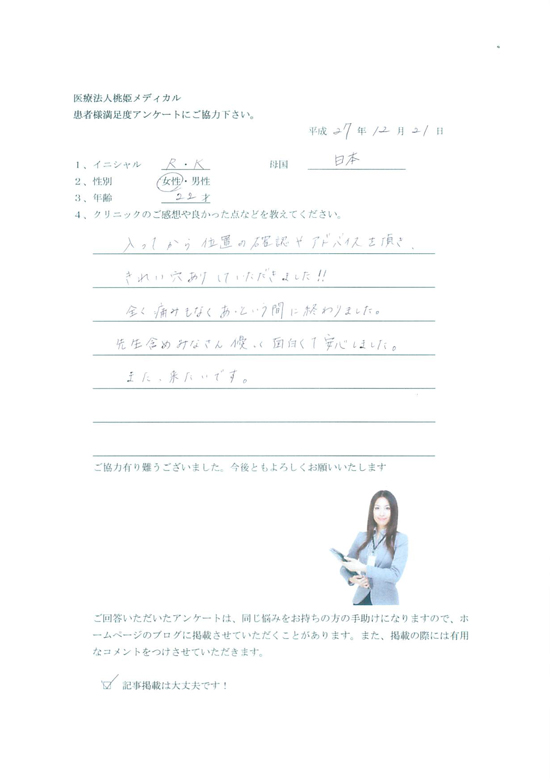 医療法人桃姫メディカル
患者様満足度アンケートにご協力下さい。
平成 27 年 12 月 21 日
1、イニシャル R・K 母国 日本
2、性別 女性・男性
3、年齢 22才
4、クリニックのご感想や良かった点などを教えてください。
入ってから位置の確認やアドバイスを頂き、
きれいに穴あけいただきました!!
全く痛みもなくあっという間に終わりました。
先生含めみなさん優しく面白くて安心しました。
また、来たいです。
ご協力有り難うございました。今後ともよろしくお願いいたします
ご回答いただいたアンケートは、同じ悩みをお持ちの方の手助けになりますので、ホ
ームページのブログに掲載させていただくことがあります。また、掲載の際には有用
なコメントをつけさせていただきます。
☑ 記事掲載は大丈夫です！